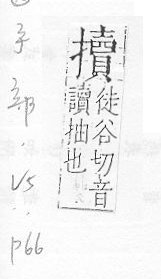 手
部
.
V5
:
p66
擩
徒谷切音
讀抽也